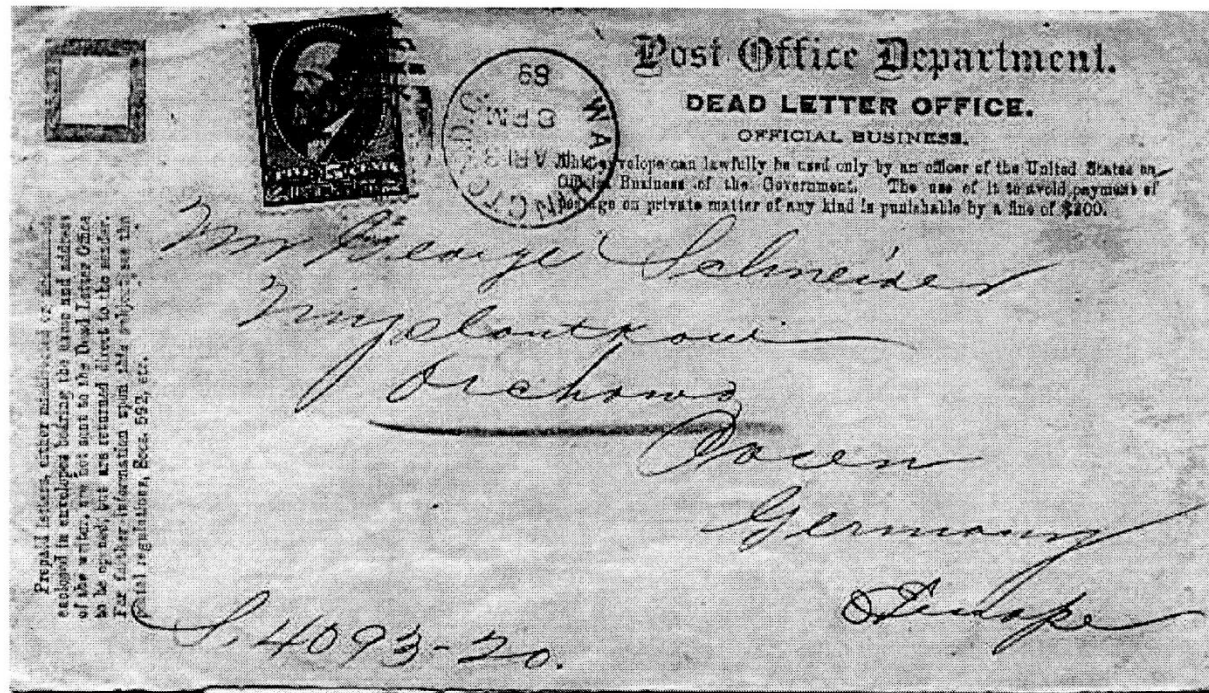 Post Office Department.
DEAD LETTER OFFICE.
OFFICIAL BUSINESS.
This envelope can lawfully be used only by an officer of the United States on
Official Business of the Government. The use of it to avoid payment of
postage on private matter of any kind is punishable by a fine of $300.
WASHINGTON
APR 3
8 PM
89
Mr George Schneider
Orchowo
Posen
Germany
Europe
S. 4093-20.
Prepaid letters, either misdirected or
enclosed in envelopes bearing the name and address
of the writer, are not sent to the Dead Letter Office
to be opened, but are returned direct to the sender.
For further information upon this subject, see the
Postal regulations, Secs. 592, etc.